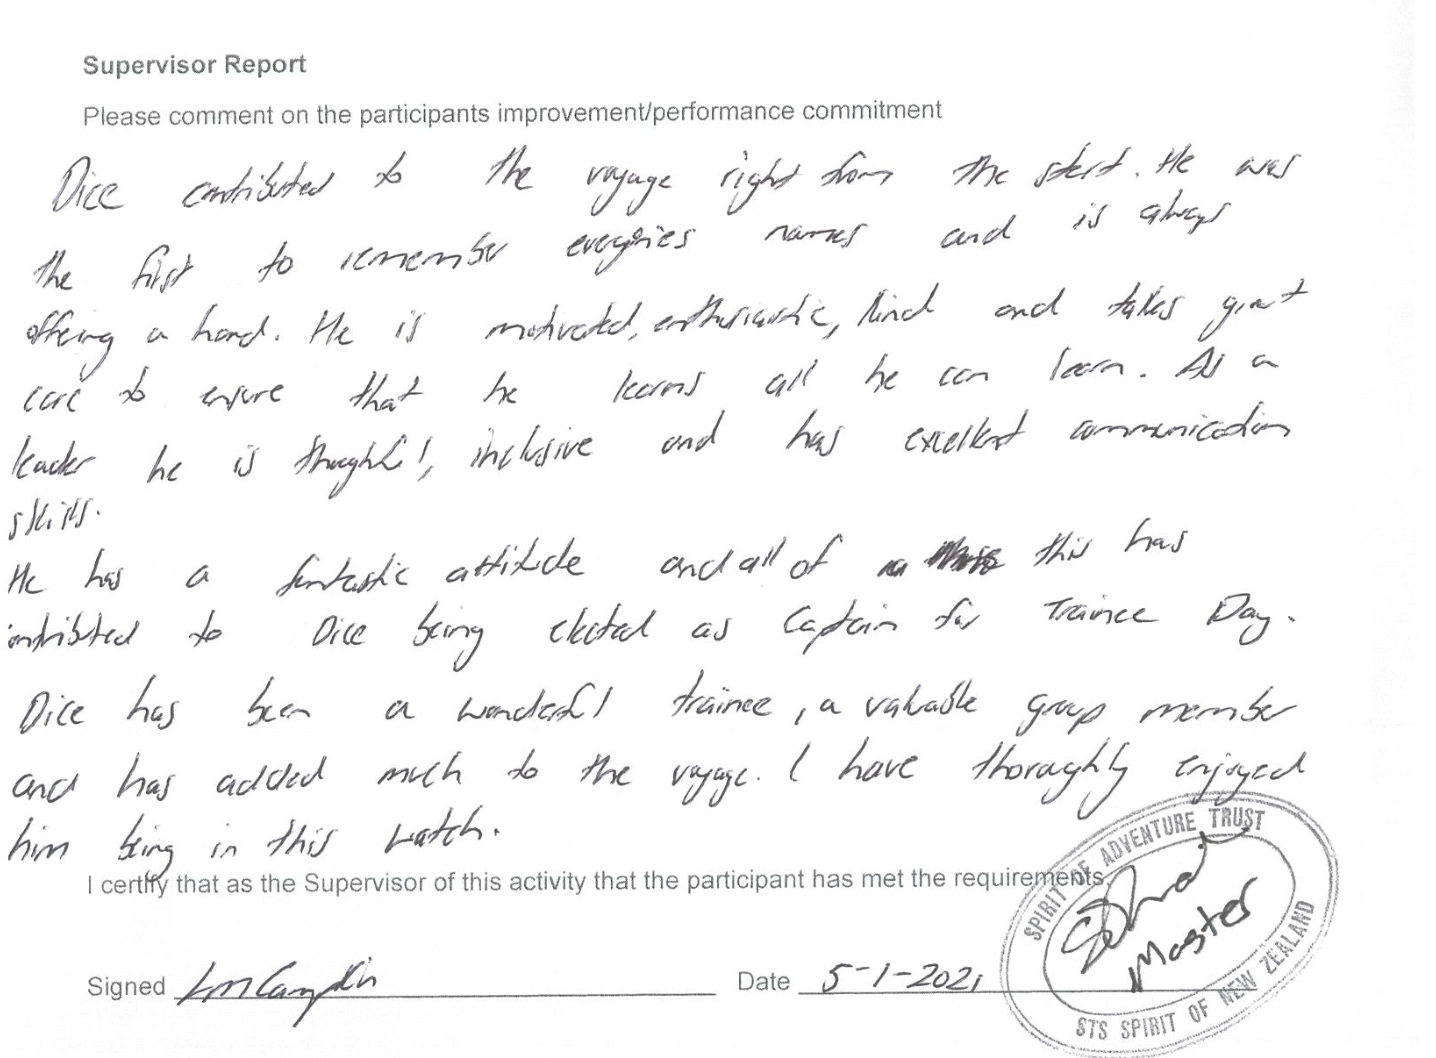 Supervisor Report
Please comment on the participants improvement/performance commitment
Dice contributed to the voyage right from the start. He was
the first to remember everyones names and is always
offering a hand. He is motivated, enthusiastic, kind and takes great
care to ensure that he learns all he can learn. As a
leader he is thoughtful, inclusive and has excellent communication
skills.
He has a fantastic attitude and all of this has
contributed to Dice being elected as Captain for Trainee Day.
Dice has been a wonderful trainee, a valuable group member
and has added much to the voyage. I have thoroughly enjoyed
him being in this watch.
I certify that as the Supervisor of this activity that the participant has met the requirements.
SPIRIT OF ADVENTURE TRUST
Master
STS SPIRIT OF NEW ZEALAND
Signed
Date 5-1-2021